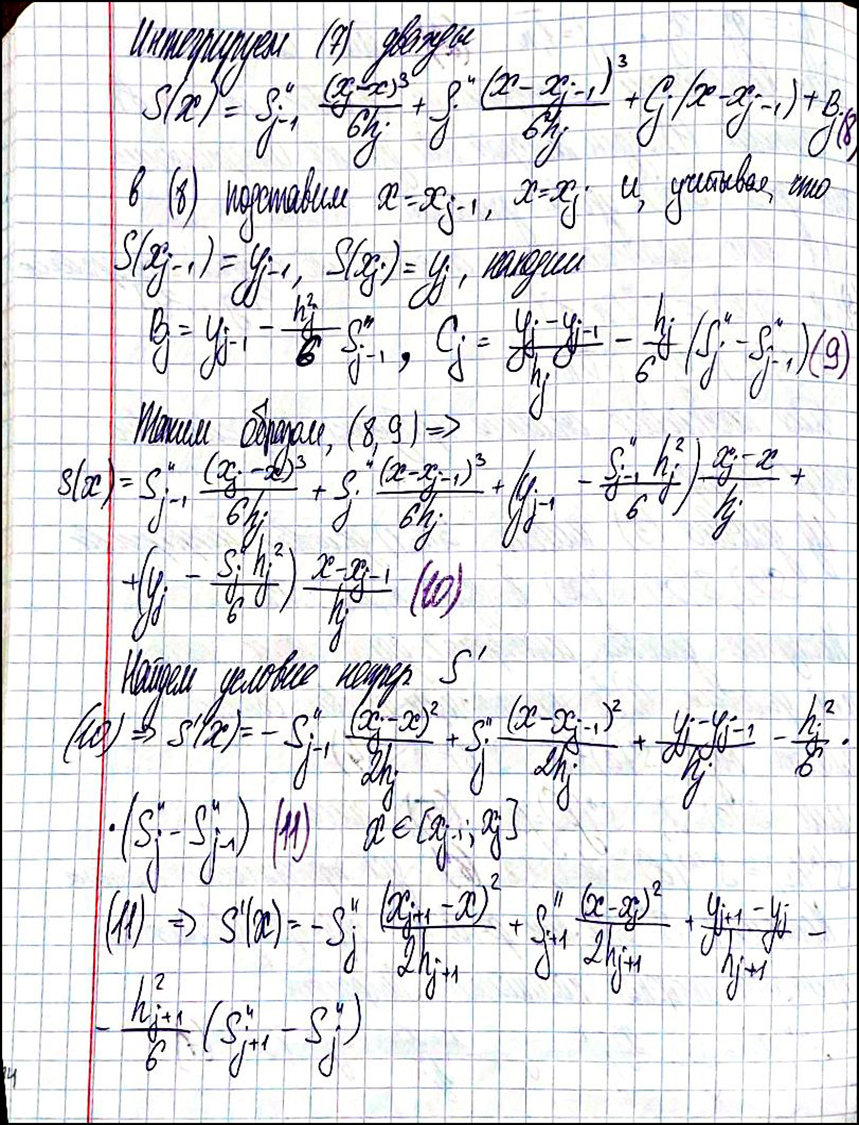 Интегрируем (7) дважды
S(x) = S''_{j-1} \frac{(x_j-x)^3}{6h_j} + S''_j \frac{(x-x_{j-1})^3}{6h_j} + C_j(x-x_{j-1}) + B_j (8)
В (8) подставим x=x_{j-1}, x=x_j и, учитывая, что
S(x_{j-1}) = y_{j-1}, S(x_j) = y_j, находим
B_j = y_{j-1} - \frac{h_j^2}{6} S''_{j-1}, C_j = \frac{y_j-y_{j-1}}{h_j} - \frac{h_j}{6} (S''_j - S''_{j-1}) (9)
Таким образом, (8,9) =>
S(x) = S''_{j-1} \frac{(x_j-x)^3}{6h_j} + S''_j \frac{(x-x_{j-1})^3}{6h_j} + (y_{j-1} - \frac{S''_{j-1} h_j^2}{6}) \frac{x_j-x}{h_j} +
+ (y_j - \frac{S''_j h_j^2}{6}) \frac{x-x_{j-1}}{h_j} (10)
Найдем условие непрер S'
(10) => S'(x) = -S''_{j-1} \frac{(x_j-x)^2}{2h_j} + S''_j \frac{(x-x_{j-1})^2}{2h_j} + \frac{y_j-y_{j-1}}{h_j} - \frac{h_j^2}{6} ·
· (S''_j - S''_{j-1}) (11) x ∈ [x_{j-1}; x_j]
(11) => S'(x) = -S''_j \frac{(x_{j+1}-x)^2}{2h_{j+1}} + S''_{j+1} \frac{(x-x_j)^2}{2h_{j+1}} + \frac{y_{j+1}-y_j}{h_{j+1}} -
- \frac{h_{j+1}^2}{6} (S''_{j+1} - S''_j)